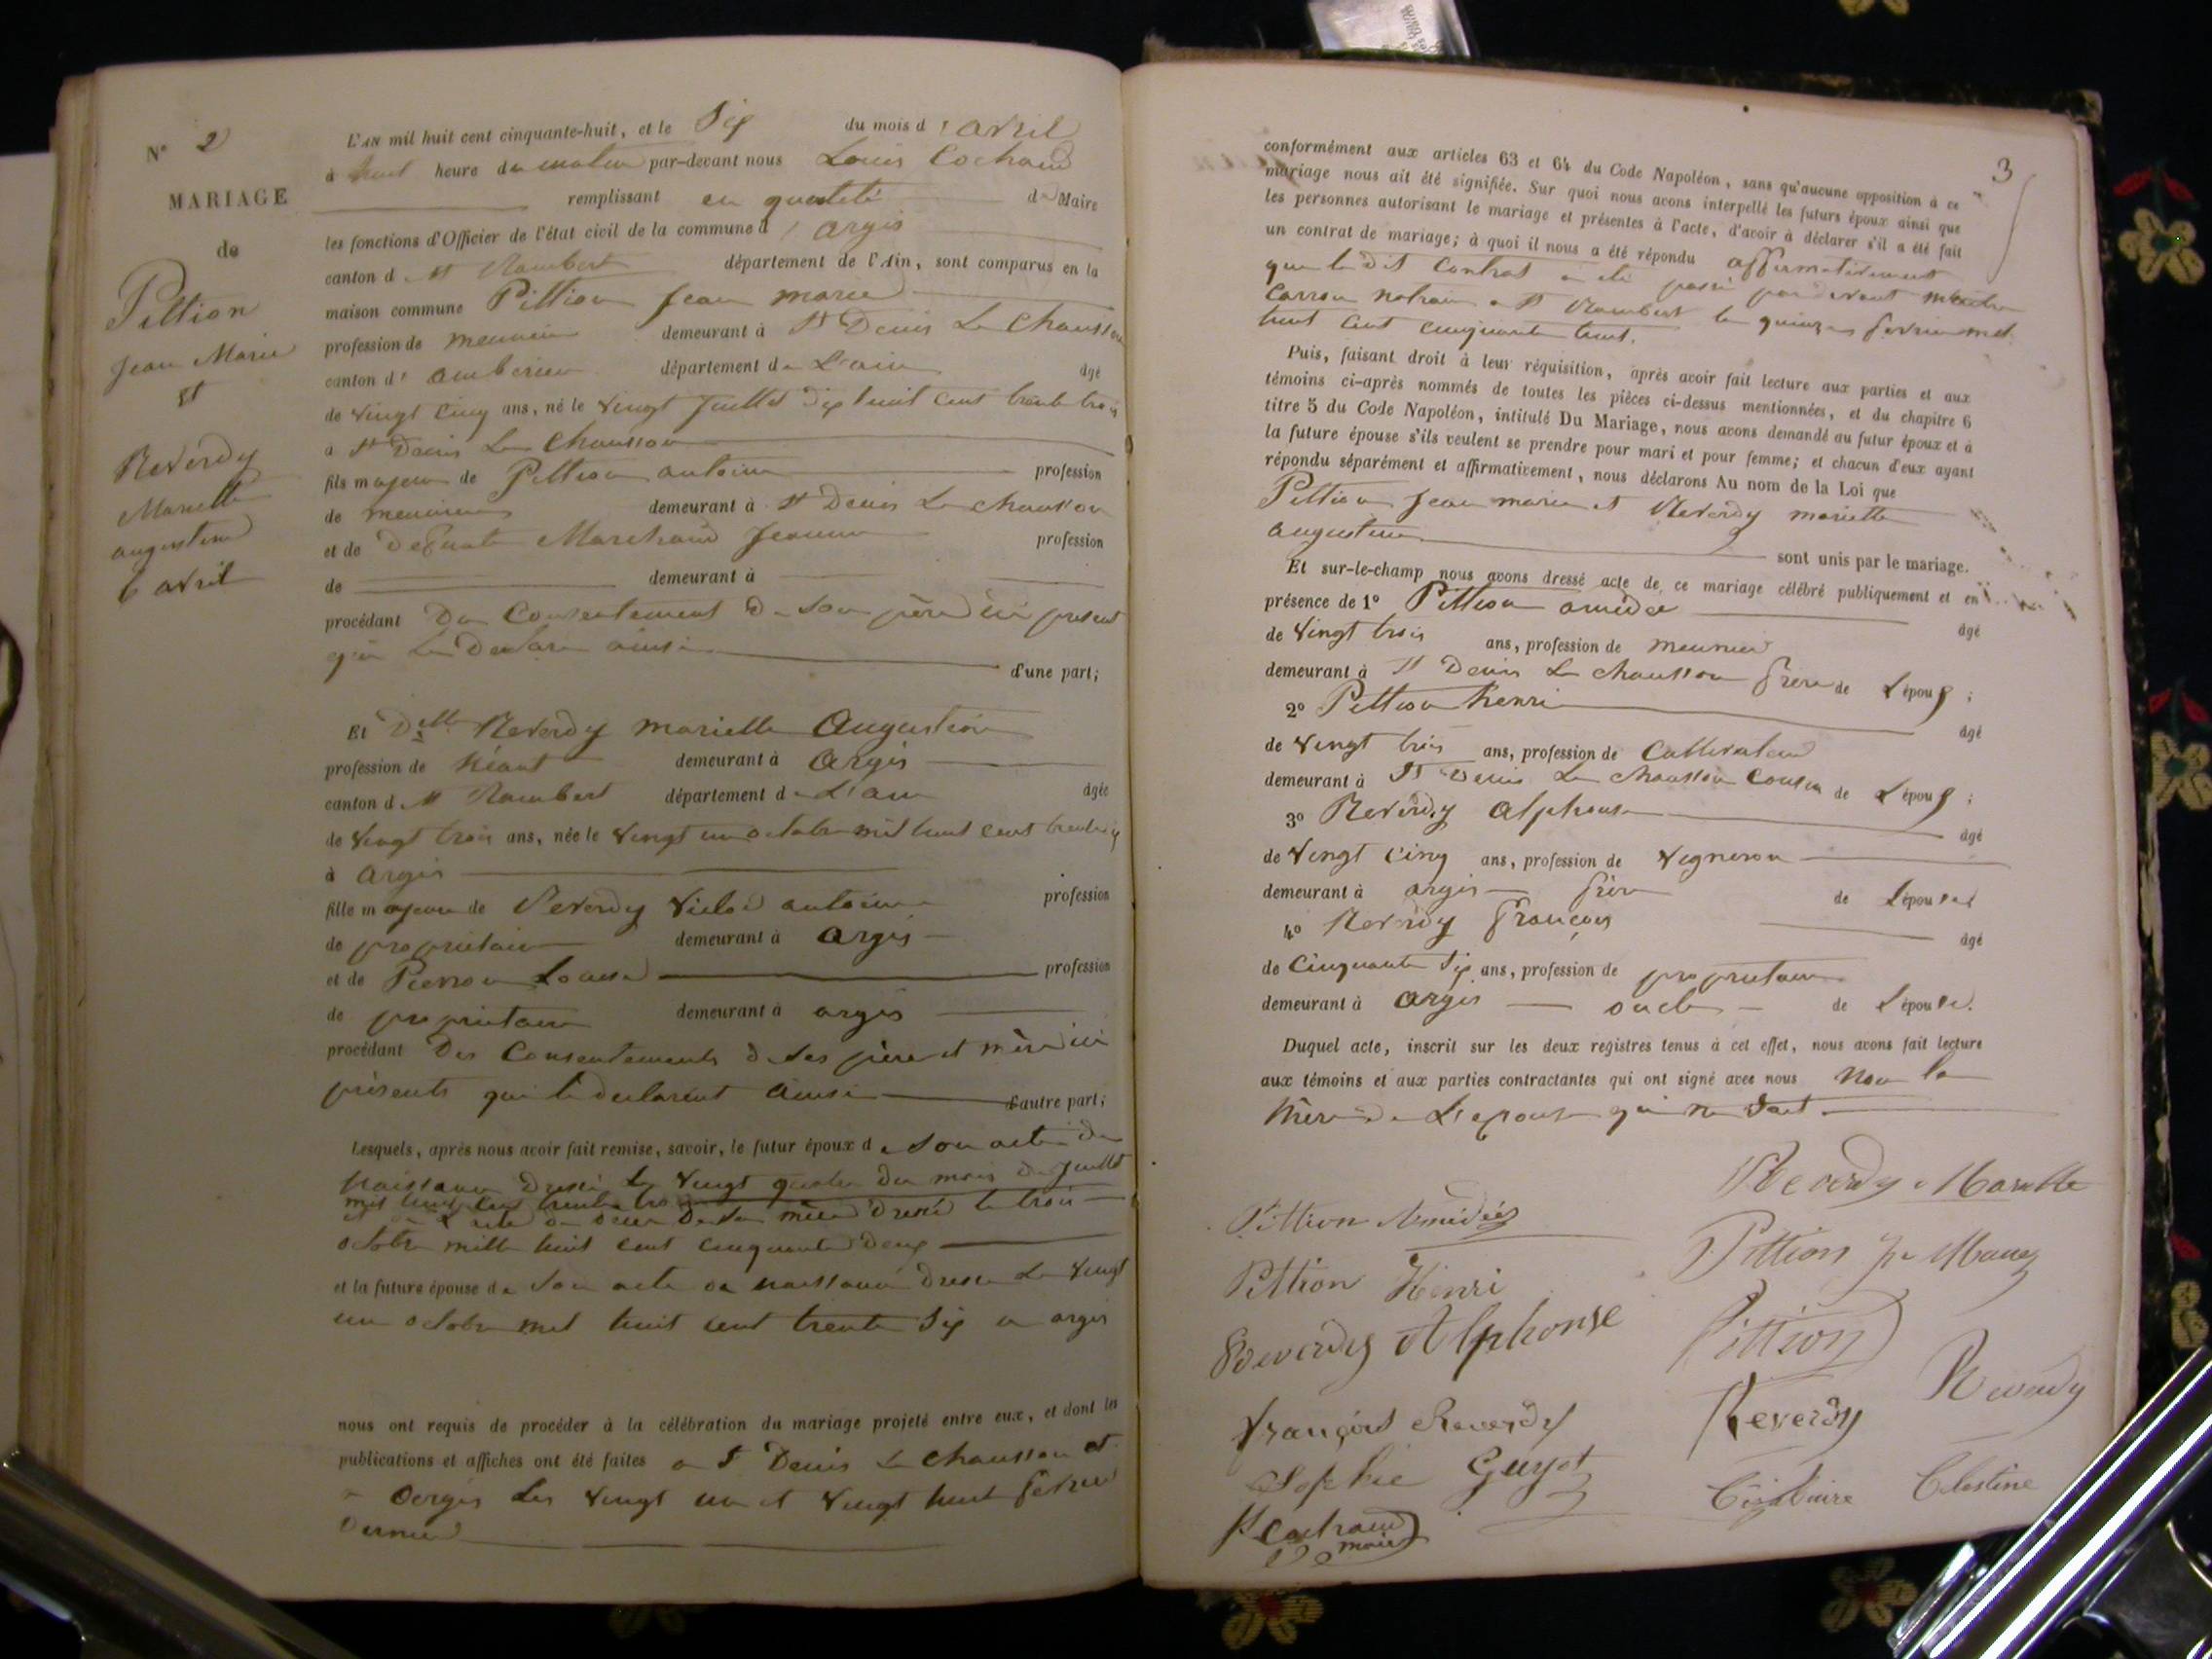 N° 2
MARIAGE
de
Pittion
Jean Marie
et
Reverdy
Mariette
augustine
6 avril
L'AN mil huit cent cinquante-huit, et le Six du mois d'avril
à huit heure du matin par-devant nous Louis Cochaud
remplissant en qualité de Maire
les fonctions d'Officier de l'état civil de la commune d'argis
canton de St Rambert département de l'Ain, sont comparus en la
maison commune Pittion Jean marie
profession de meunier demeurant à St Denis Le Chausson
canton d'ambérieu département de L'ain âgé
de vingt cinq ans, né le vingt Juillet dix huit cent trente trois
à St Denis Le Chausson
fils majeur de Pittion antoine profession
de meunier demeurant à St Denis Le chausson
et de Defunte Marchand Jeanne profession
de demeurant à
procédant Du Consentement De Son père ici présent
qui Le Declare ainsi d'une part;
Et Delle Reverdy mariette Augustine
profession de Néant demeurant à Argis
canton de St Rambert département de L'ain âgée
de vingt trois ans, née le vingt un octobre mil huit cent trente
à argis
fille majeure de Reverdy Victor antoine profession
de propriétaire demeurant à argis
et de Pierron Louise profession
de propriétaire demeurant à argis
procédant Des Consentements de Ses père et mère ici
présents qui le declarent ainsi d'autre part;
Lesquels, après nous avoir fait remise, savoir, le futur époux de Son acte de
Naissance Dressé Le vingt quatre du mois de Juillet
mil huit cent trente trois
et L'acte de deces De Sa mère Dressé le trois
octobre mille huit cent cinquante Deux
et la future épouse de Son acte de naissance Dressé Le vingt
un octobre mil huit cent trente Six a argis
nous ont requis de procéder à la célébration du mariage projeté entre eux, et dont les
publications et affiches ont été faites a St Denis Le Chausson et
a argis Les vingt un et vingt huit fevrier
Dernier
3
conformément aux articles 63 et 64 du Code Napoléon, sans qu'aucune opposition à ce
mariage nous ait été signifiée. Sur quoi nous avons interpellé les futurs époux ainsi que
les personnes autorisant le mariage et présentes à l'acte, d'avoir à déclarer s'il a été fait
un contrat de mariage; à quoi il nous a été répondu affirmativement
que le dit Contrat a été passé par devant maitre
Carron notaire a St Rambert le quinze fevrier mil
huit cent cinquante huit.
Puis, faisant droit à leur réquisition, après avoir fait lecture aux parties et aux
témoins ci-après nommés de toutes les pièces ci-dessus mentionnées, et du chapitre 6
titre 5 du Code Napoléon, intitulé Du Mariage, nous avons demandé au futur époux et à
la future épouse s'ils veulent se prendre pour mari et pour femme; et chacun d'eux ayant
répondu séparément et affirmativement, nous déclarons Au nom de la Loi que
Pittion Jean marie et Reverdy mariette
augustine sont unis par le mariage.
Et sur-le-champ nous avons dressé acte de ce mariage célébré publiquement et en
présence de 1° Pittion amédée âgé
de vingt trois ans, profession de meunier
demeurant à St Denis Le chausson frère de L'époux;
2° Pittion henri âgé
de vingt trois ans, profession de Cultivateur
demeurant à St Denis Le chausson Cousin de L'époux;
3° Reverdy Alphonse âgé
de vingt cinq ans, profession de vigneron
demeurant à argis frère de L'épouse
4° Reverdy François âgé
de Cinquante Six ans, profession de propriétaire
demeurant à Argis oncle de L'épouse.
Duquel acte, inscrit sur les deux registres tenus à cet effet, nous avons fait lecture
aux témoins et aux parties contractantes qui ont signé avec nous Non la
Mère de L'epouse qui ne Sait
Reverdy Mariette
Pittion Amédée
Pittion Jn Marie
Pittion Henri
Pittion
Reverdy Alphonse
Reverdy
François Reverdy
Reverdy
Sophie Guyot
Célestine
Cochaud
maire